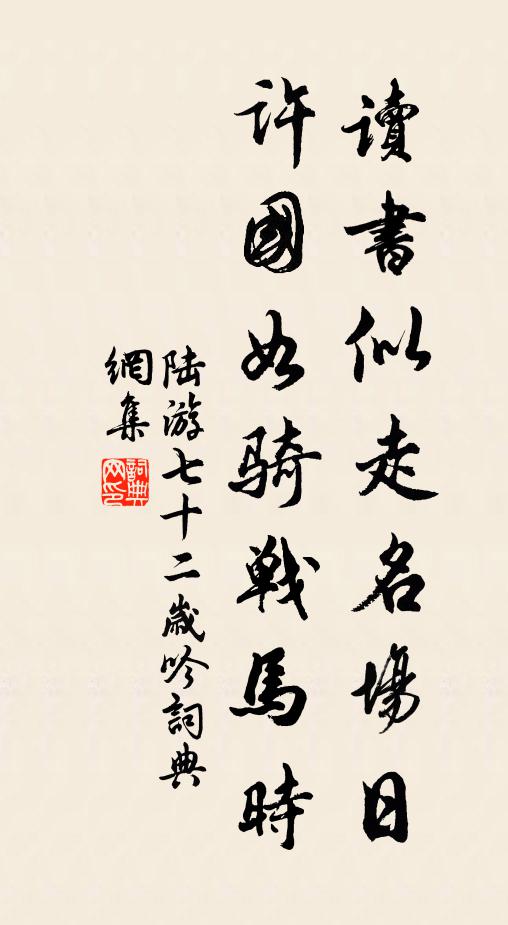 讀書似走名場日
許國如騎戰馬時
陸游七十二歲吟詞典
網集
詞典
网印